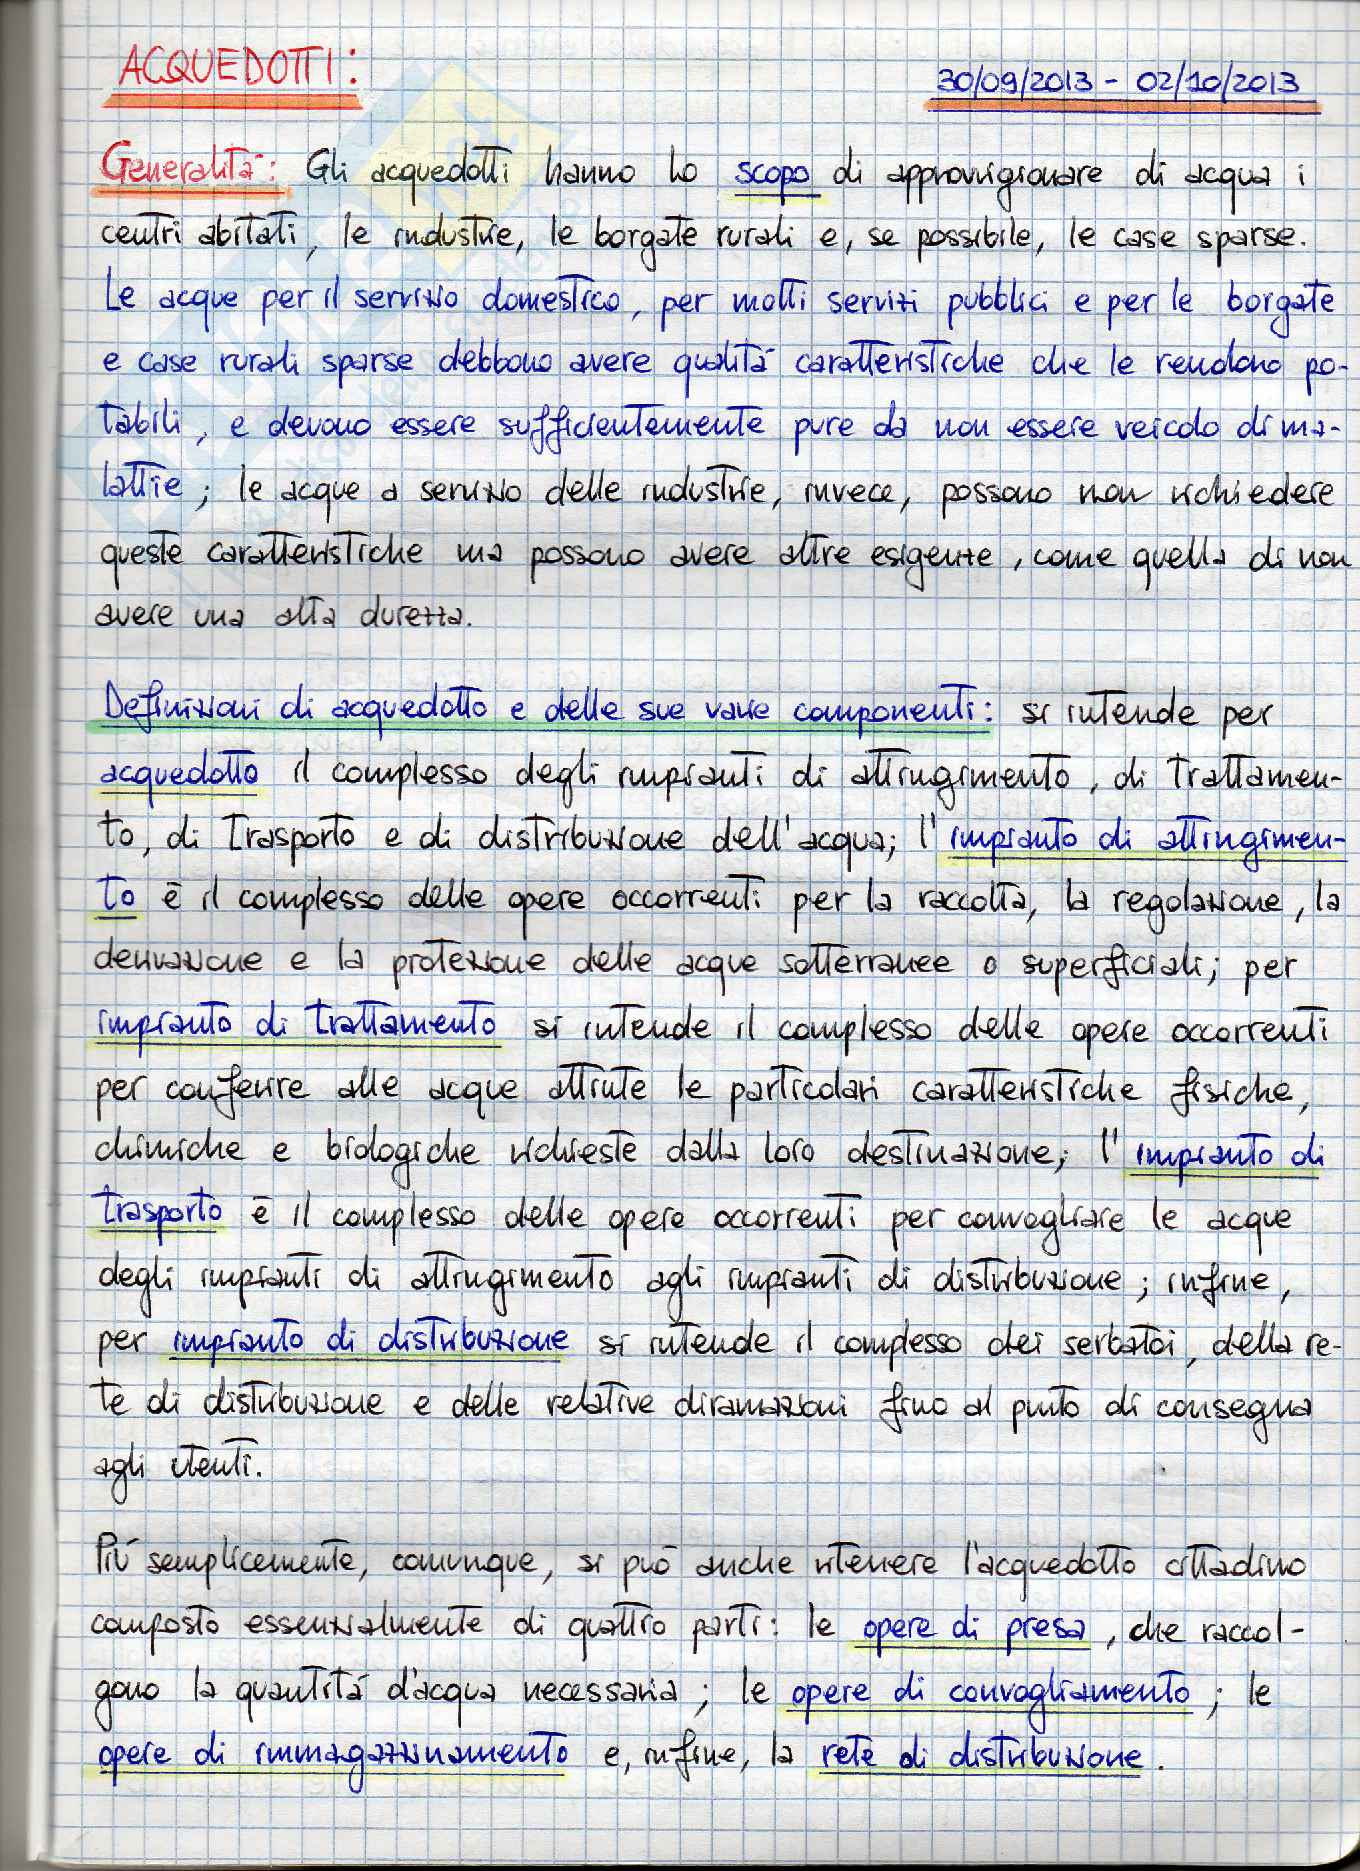 ACQUEDOTTI:
30/09/2013 - 02/10/2013
Generalità: Gli acquedotti hanno lo scopo di approvvigionare di acqua i
centri abitati, le industrie, le borgate rurali e, se possibile, le case sparse.
Le acque per il servizio domestico, per molti servizi pubblici e per le borgate
e case rurali sparse debbono avere qualità caratteristiche che le rendono po-
tabili, e devono essere sufficientemente pure da non essere veicolo di ma-
lattie; le acque a servizio delle industrie, invece, possono non richiedere
queste caratteristiche ma possono avere altre esigenze, come quella di non
avere una alta durezza.
Definizioni di acquedotto e delle sue varie componenti: si intende per
acquedotto il complesso degli impianti di attingimento, di trattamen-
to, di trasporto e di distribuzione dell'acqua; l'impianto di attingimen-
to è il complesso delle opere occorrenti per la raccolta, la regolazione, la
derivazione e la protezione delle acque sotterranee o superficiali; per
impianto di trattamento si intende il complesso delle opere occorrenti
per conferire alle acque attinte le particolari caratteristiche fisiche,
chimiche e biologiche richieste dalla loro destinazione; l'impianto di
trasporto è il complesso delle opere occorrenti per convogliare le acque
degli impianti di attingimento agli impianti di distribuzione; infine,
per impianto di distribuzione si intende il complesso dei serbatoi, della re-
te di distribuzione e delle relative diramazioni fino al punto di consegna
agli utenti.
Più semplicemente, comunque, si può anche ritenere l'acquedotto cittadino
composto essenzialmente di quattro parti: le opere di presa, che raccol-
gono la quantità d'acqua necessaria; le opere di convogliamento; le
opere di immagazzinamento e, infine, la rete di distribuzione.